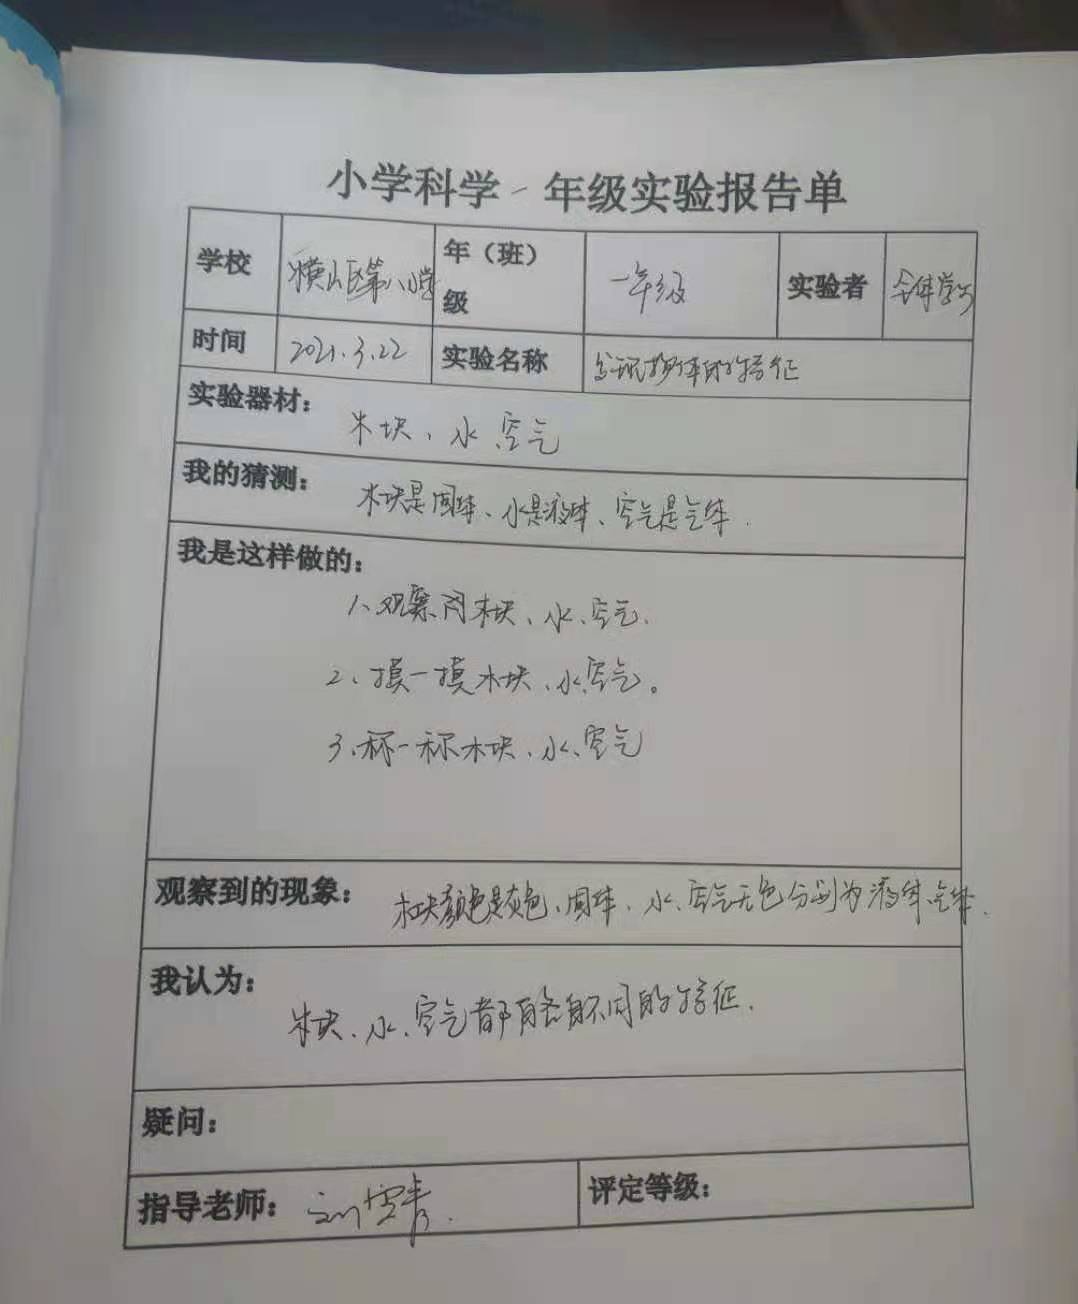 小学科学一年级实验报告单
学校 横山区第八小学 年（班）级 一年级 实验者 全体学生
时间 2021.3.22 实验名称 发现物体的特征
实验器材：木块、水、空气
我的猜测：木块是固体、水是液体、空气是气体.
我是这样做的：
1、观察 木块、水、空气.
2、摸一摸木块、水、空气。
3、称一称木块、水、空气
观察到的现象：木块颜色是灰色、固体、水、空气无色分别为液体、气体.
我认为：
木块、水、空气都有各自不同的特征.
疑问：
指导老师：刘 评定等级：